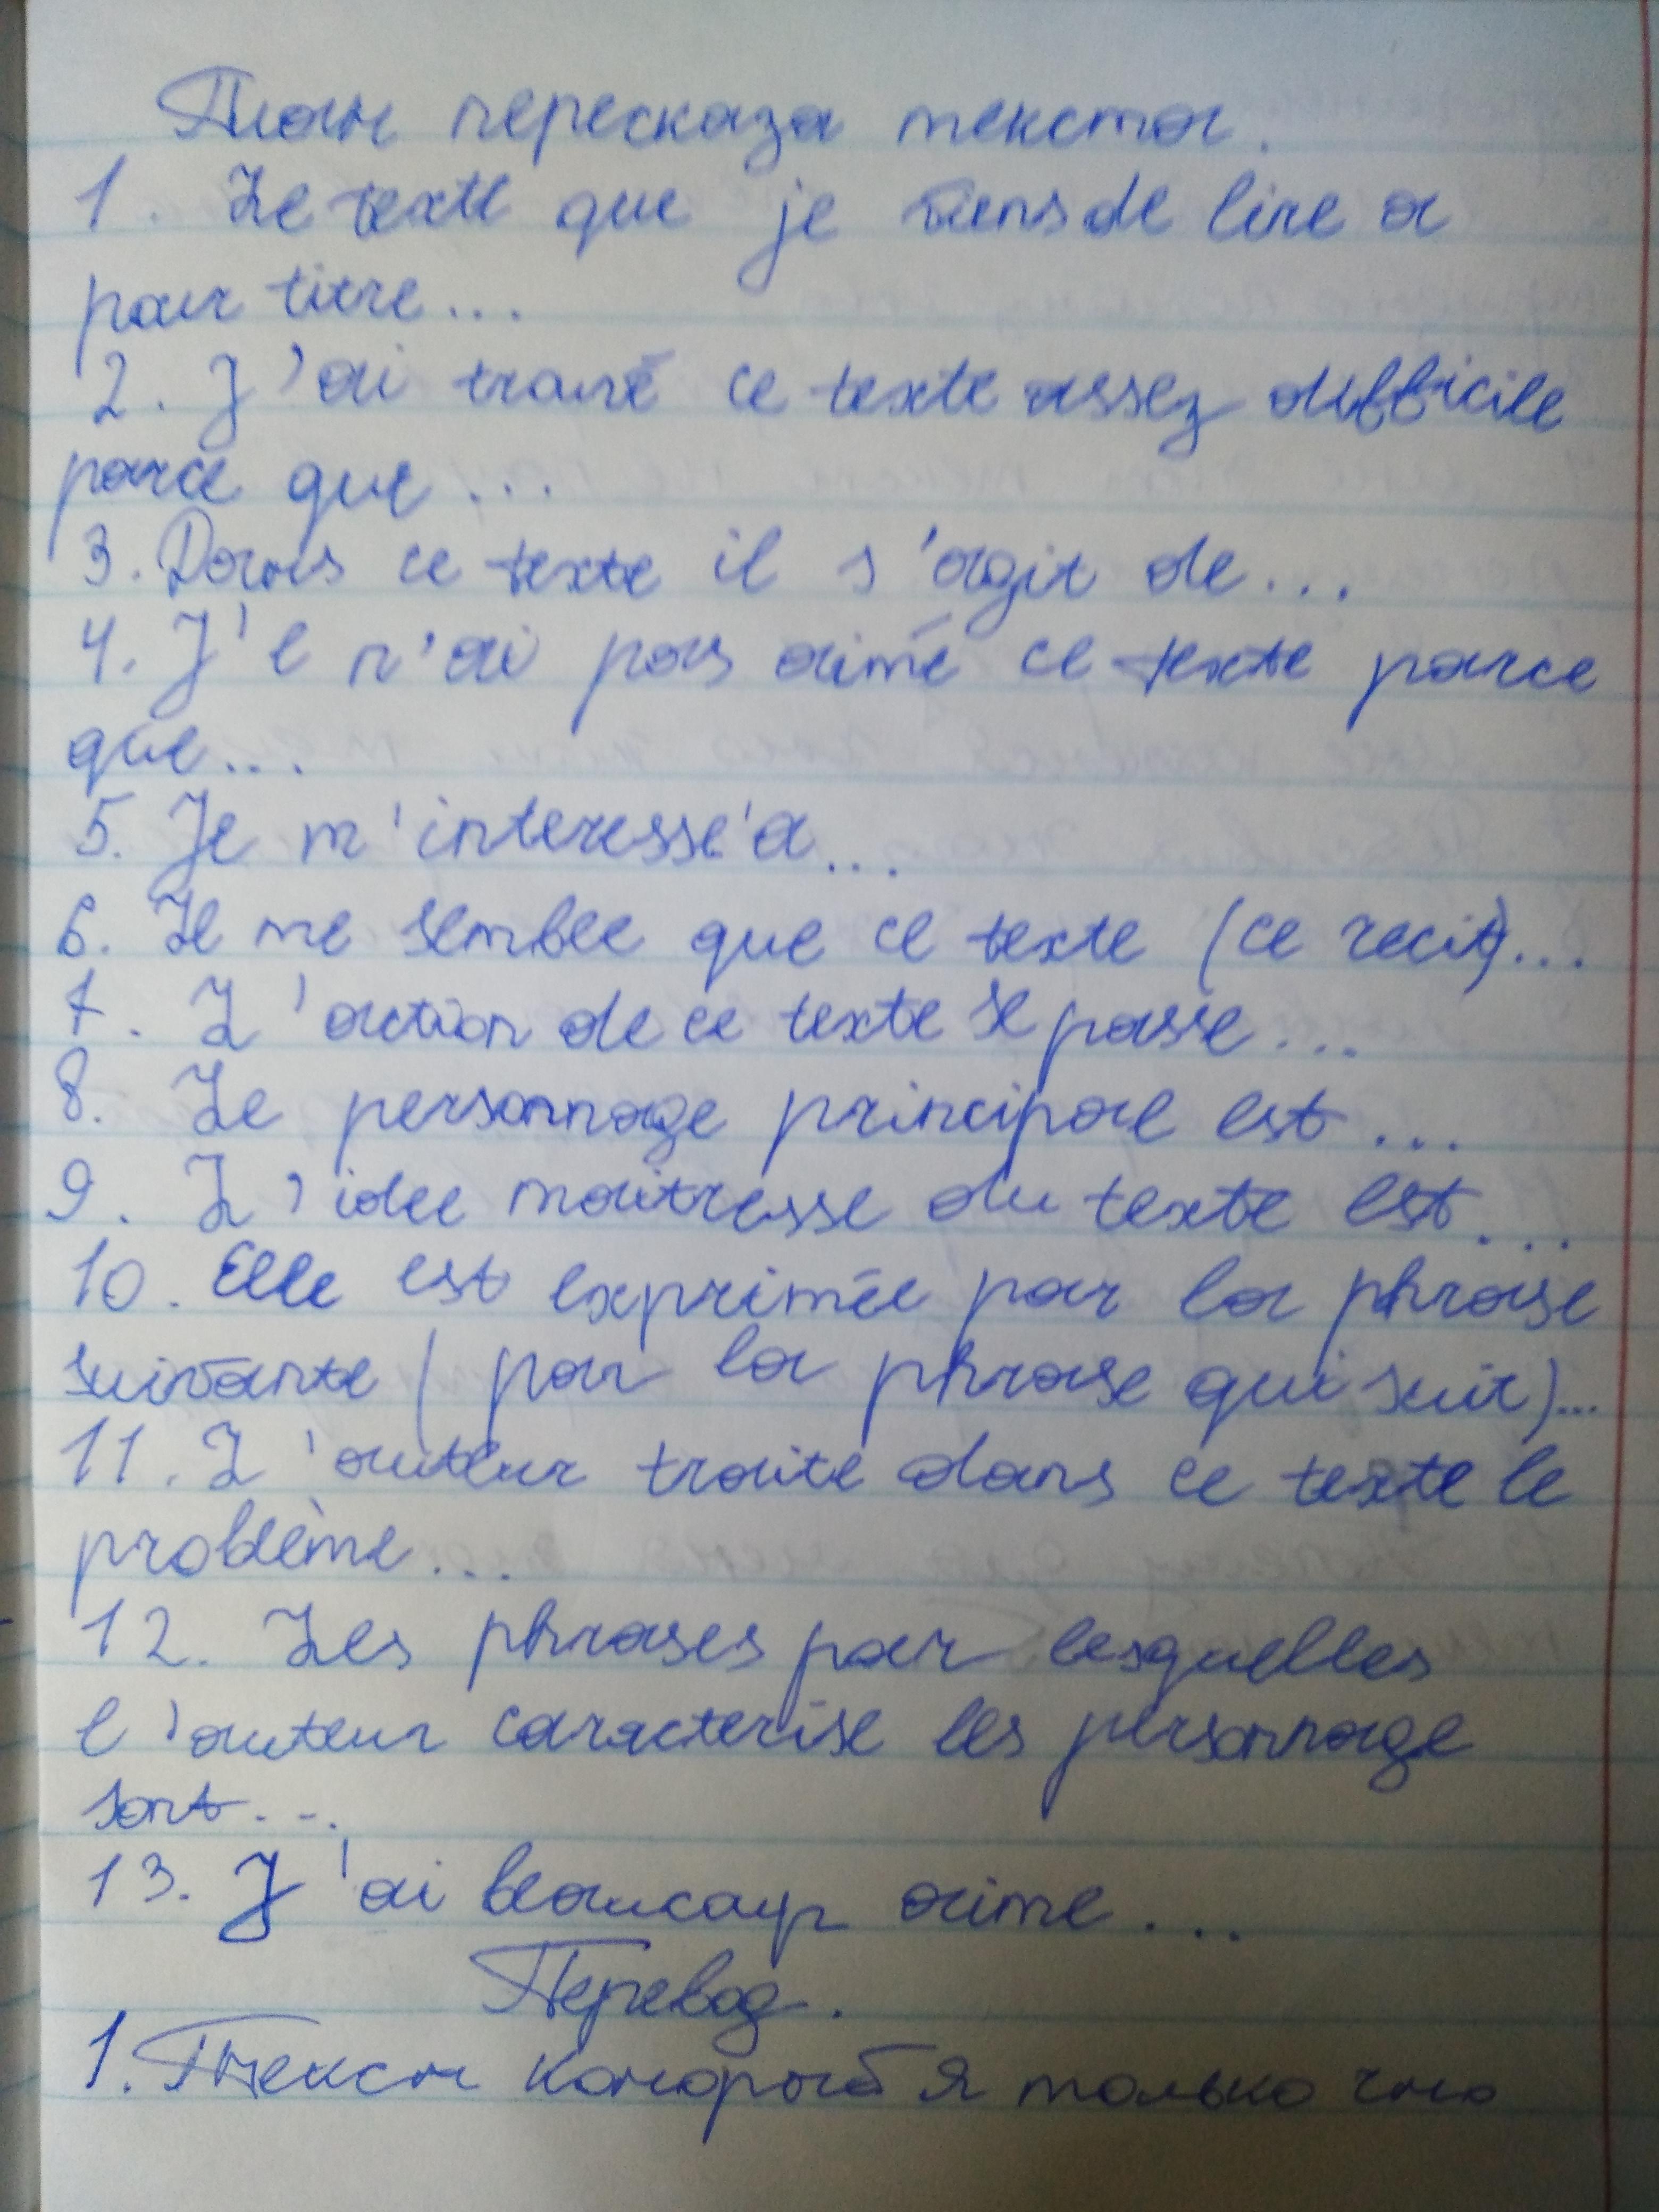 План пересказа текста.
1. Le texte que je viens de lire a
pour titre...
2. J'ai trouvé ce texte assez difficile
parce que...
3. Dans ce texte il s'agit de...
4. J'e n'ai pas aimé ce texte parce
que...
5. Je m'interesse'a...
6. Il me semble que ce texte (ce recit)...
7. L'action de ce texte se passe...
8. Le personnage principal est...
9. L'idee maitresse du texte est...
10. Elle est exprimée par la phrase
suivante (par la phrase qui suit)...
11. L'auteur traite dans ce texte le
problème...
12. Les phrases par lesquelles
l'auteur caracterise les personnage
sont...
13. J'ai beaucoup aime...
Перевод.
1. Текст который я только что